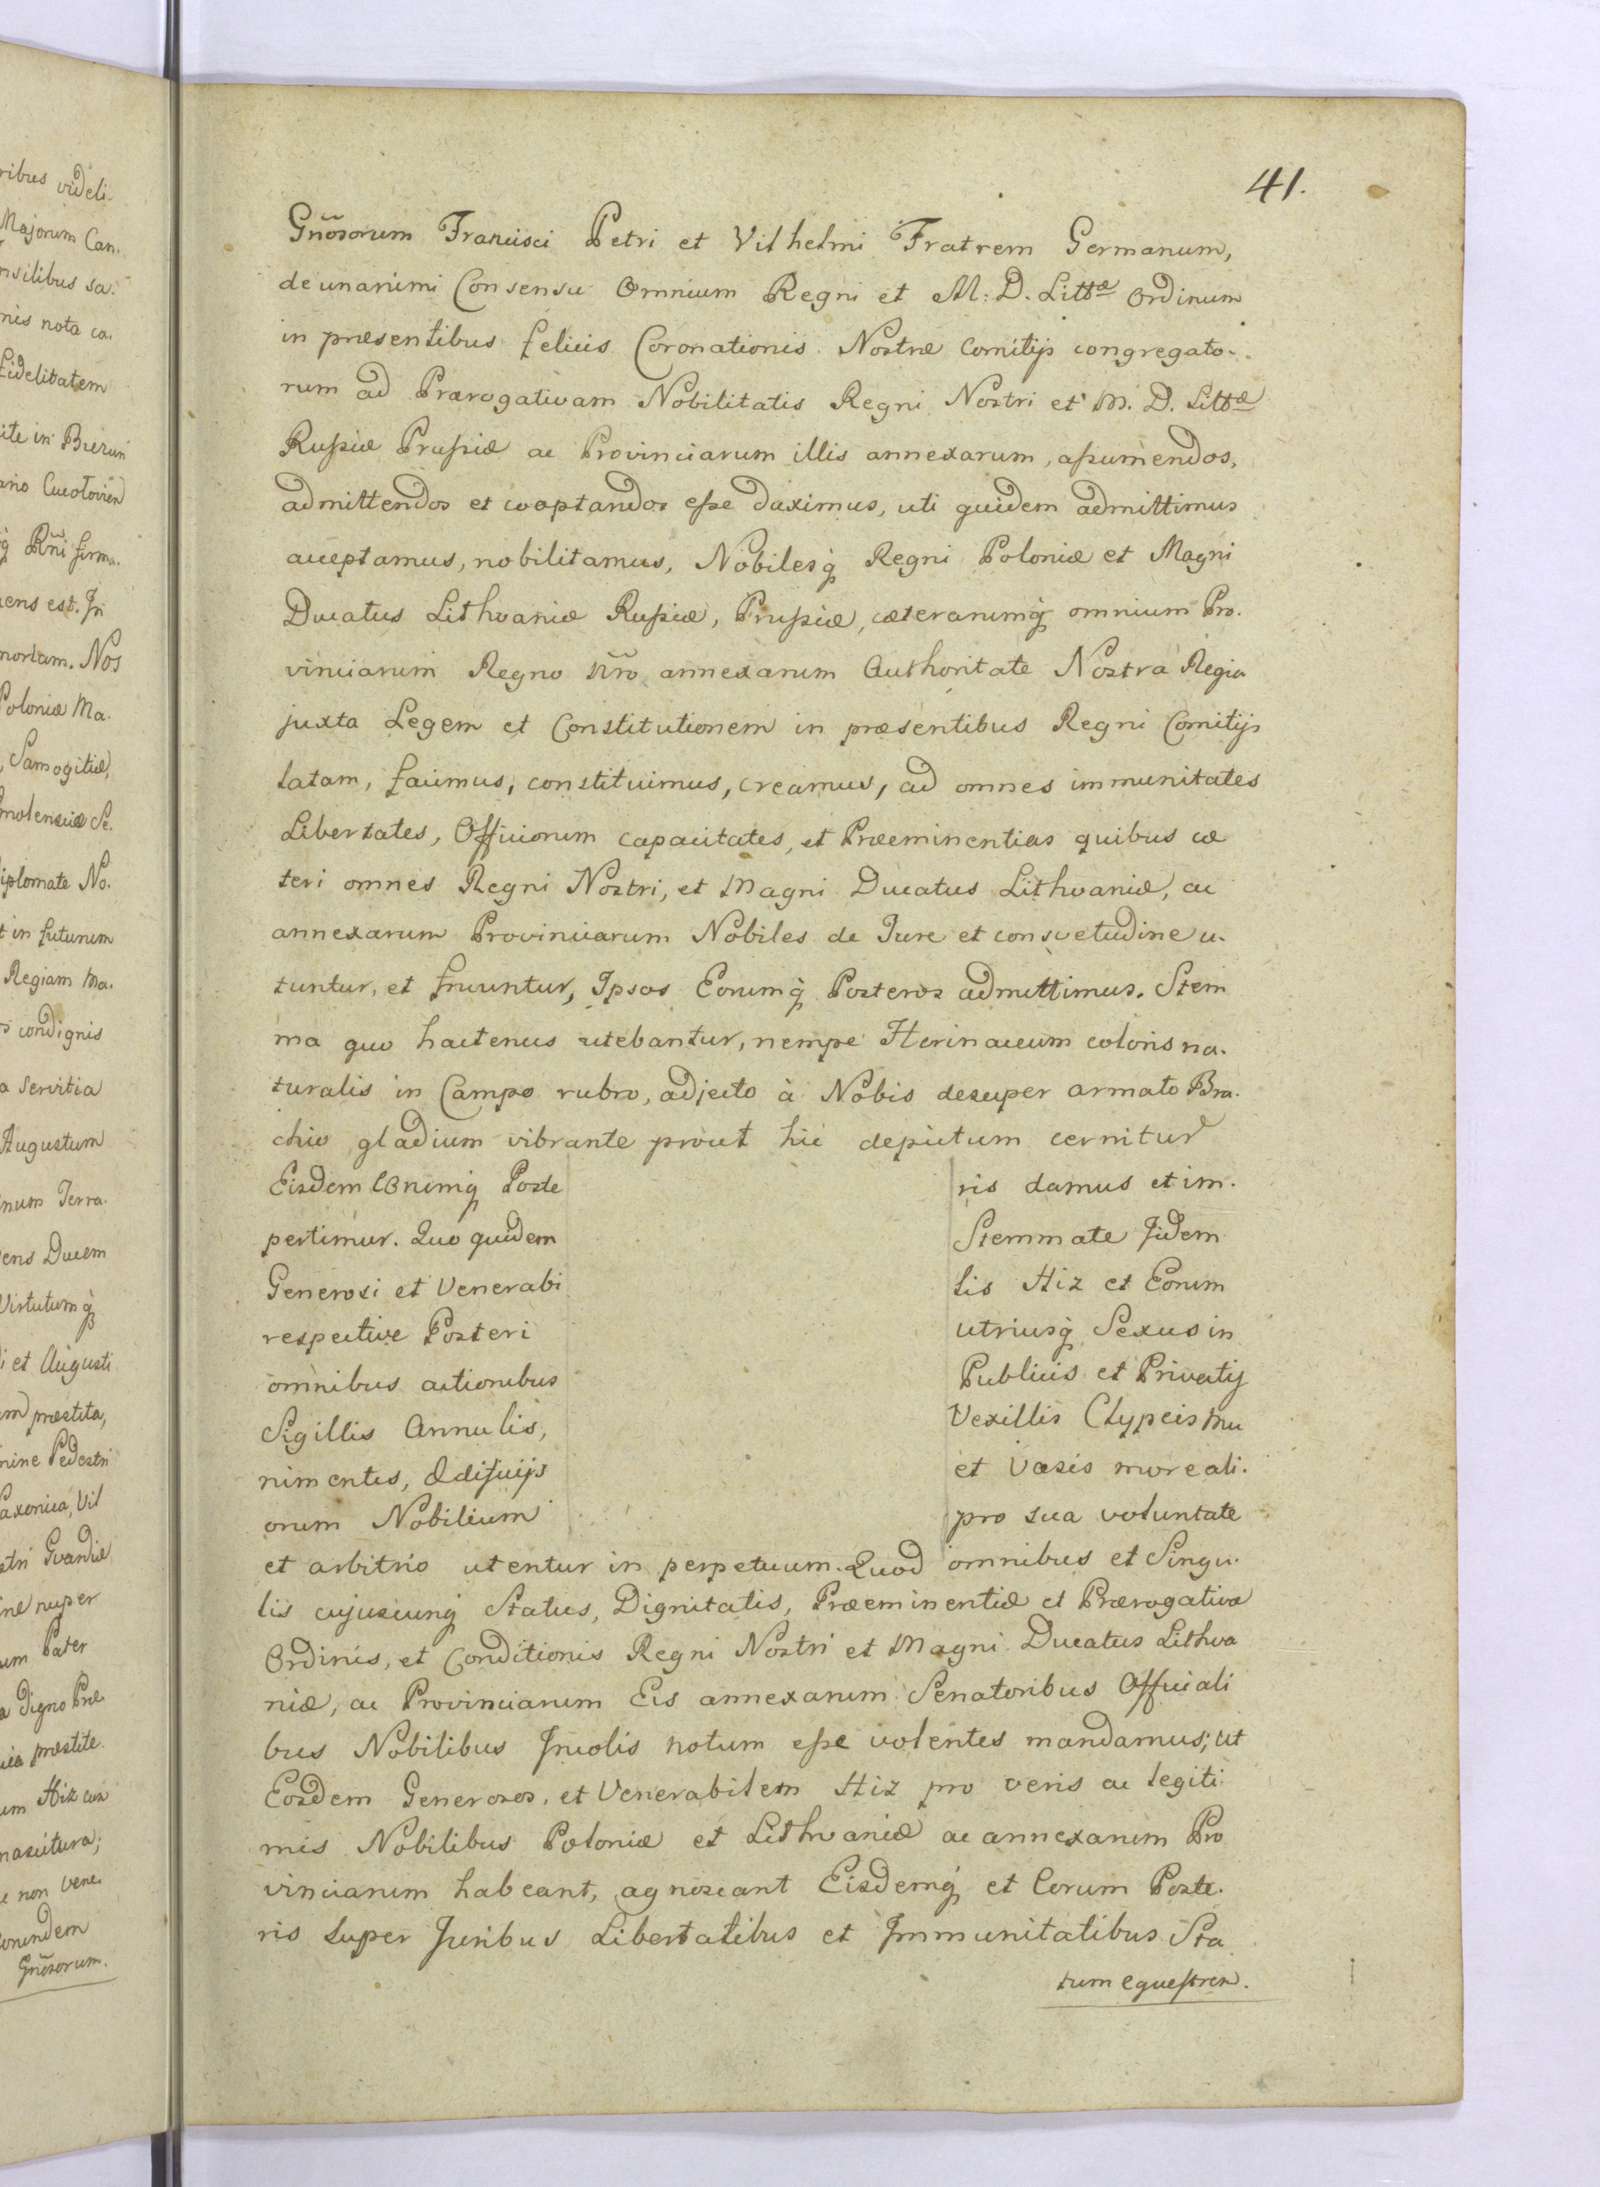 ribus videli-
Majorum Can.
nsilibus sa.
nis nota ca.
Fidelitatem
ite in Bierun
ano Cucolovien
q̃ Rñi firma.
uens est. In
mortam. Nos
Poloniæ Ma.
, Samogitiæ,
molensciæ Se.
iplomate No.
t in futurum
Regiam Ma.
condignis
a Servitia
Augustum
num Terra.
ens Ducem
Virtutumq̃
i et Augusti
præstita,
mine Pedestri
Saxonica, Vil
stri Gvardiæ
ne nuper
um Pater
a digno Præ
præstite.
um Hiz cum
nascitura;
e non Vene.
Eorundem
Gñosorum.
41.
Gñosorum Francisci Petri et Vilhelmi Fratrem Germanum,
de unanimi Consensu Omnium Regni et M: D. Littæ Ordinum
in præsentibus felicis Coronationis Nostræ Comitijs congregato-
rum ad Prærogativam Nobilitatis Regni Nostri et M. D. Littæ
Rußiæ Prußiæ ac Provinciarum illis annexarum, aßumendos,
admittendos et cooptandos eße duximus, uti quidem admittimus
acceptamus, nobilitamus, Nobilesq̃ Regni Poloniæ et Magni
Ducatus Lithvaniæ Rußiæ, Prußiæ, cæterarumq̃ omnium Pro.
vinciarum Regno Nr̃o annexarum Authoritate Nostra Regia
juxta Legem et Constitutionem in præsentibus Regni Comitijs
latam, facimus, constituimus, creamus, ad omnes immunitates
Libertates, Officiorum capacitates, et Præeminentias quibus cæ
teri omnes Regni Nostri, et Magni Ducatus Lithvaniæ, ac
annexarum Provinciarum Nobiles de Jure et consvetudine u.
tuntur, et fruuntur, Ipsos Eorumq̃ Posteros admittimus. Stem
ma quo hactenus utebantur, nempe Herinaceum coloris na.
turalis in Campo rubro, adjecto à Nobis desuper armato Bra.
chio gladium vibrante prout hic depictum cernitur
Eisdem Eorumq̃ Poste ris damus et im.
pertimur. Quo quidem Stemmate Iidem
Generosi et Venerabi lis Hiz et Eorum
respective Posteri utriusq̃ Sexus in
omnibus actionibus Publicis et Privatij
Sigillis Annulis, Vexillis Clypeis Mu
nimentis, Ædificijs et Vasis more ali.
orum Nobilium pro sua voluntate
et arbitrio utentur in perpetuum. Quod omnibus et Singu.
lis cujuscunq̃ Status, Dignitatis, Præeminentiæ et Prærogativæ
Ordinis, et Conditionis Regni Nostri et Magni Ducatus Lithva
niæ, ac Provinciarum Eis annexarum Senatoribus Officiali
bus Nobilibus Incolis notum eße volentes mandamus; ut
Eosdem Generosos, et Venerabilem Hiz pro veris ac legiti
mis Nobilibus Poloniæ et Lithvaniæ ac annexarum Pro
vinciarum habeant, agnoscant Eisdemq̃ et Eorum Poste.
ris super Juribus Libertatibus et Immunitatibus Sta
tum equestrem.